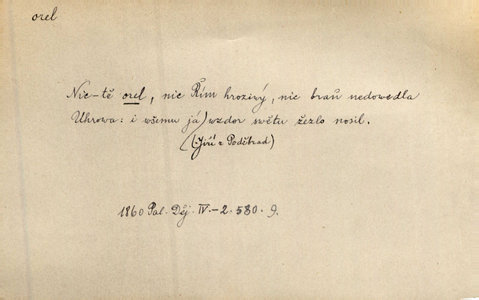 orel
Nic-tě orel, nic Řím hrozivý, nic braň nedovedla
Uhrova: i wšemu já) wzdor swětu žezlo nosil.
(Jiří z Poděbrad)
1860 Pal. Děj. IV.-2. 580. 9.